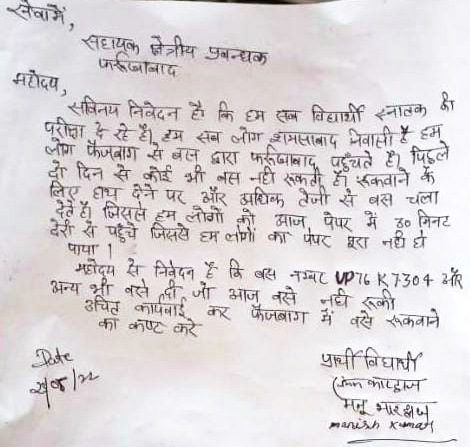 सेवा में,
सहायक क्षेत्रीय प्रबन्धक
फर्रूखाबाद
महोदय,
सविनय निवेदन है कि हम सब विद्यार्थी स्नातक की
परीक्षा दे रहे है। हम सब लोग शमसाबाद निवासी है हम
लोग फैजबाग से बस द्वारा फर्रूखाबाद पहुँचते है। पिछले
दो दिन से कोई भी बस नही रूकती है। रूकवाने के
लिए हाथ देने पर और अधिक तेजी से बस चला
देते है। जिससे हम लोगों को आज पेपर में 30 मिनट
देरी से पहुँचे जिससे हम लोगों का पेपर पूरा नही हो
पाया।
महोदय से निवेदन है कि बस नम्बर UP76 K 7304 और
अन्य भी बसे थी जो आज बसे नही रूकी
उचित कार्यवाई कर फैजबाग में बसे रूकवाने
का कष्ट करे
Date
प्रार्थी विद्यार्थी
भारद्वाज
मनू भारद्वाज
manish kumar